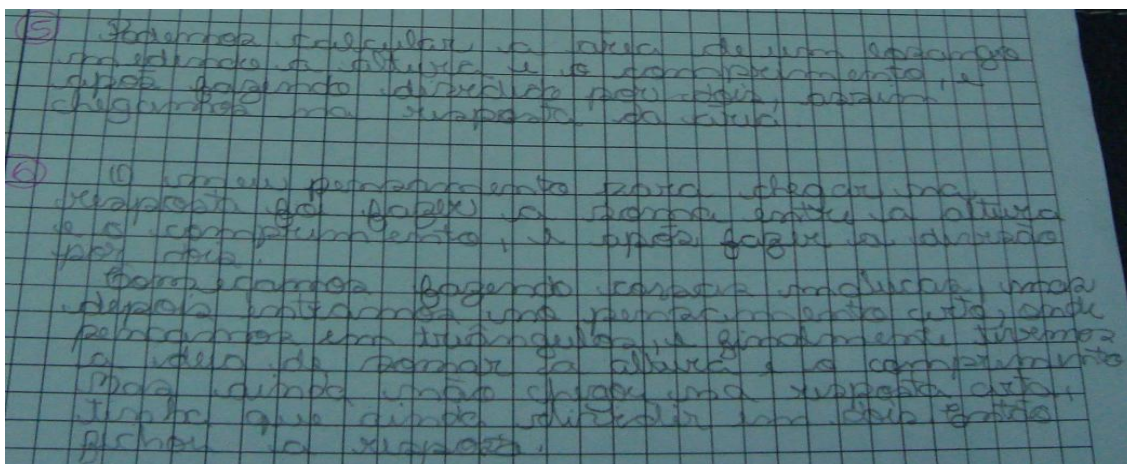 5 Podemos calcular a área de um losango
medindo a altura e o comprimento, e
após fazendo dividido por dois, assim
chegamos na resposta da área.
6 O meu pensamento para chegar na
resposta foi fazer a soma entre a altura
e o comprimento, e após fazer a divisão
por dois.
Começamos fazendo coisas malucas, mas
depois entramos no pensamento certo, onde
pensamos em triângulos, e finalmente tivemos
a ideia de somar a altura e o comprimento
Mas ainda não chegou na resposta certa,
tinha que ainda dividir em dois então
fechou a resposta.